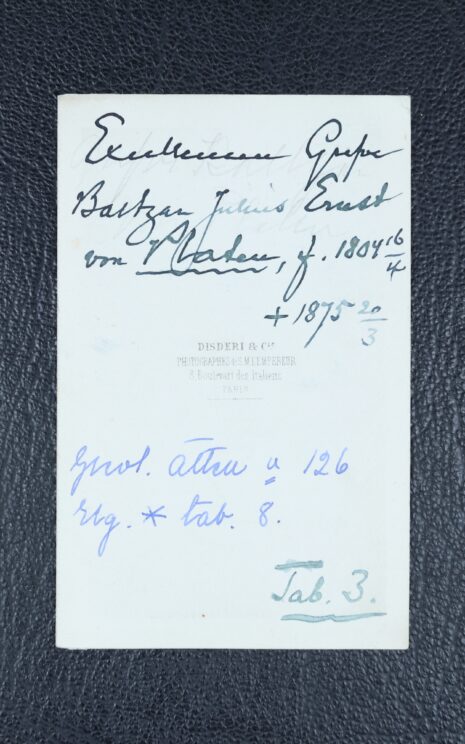 Excellensen Grefve
Baltzar Julius Ernst
von Platen, f. 1804 16/4
+ 1875 20/3
DISDERI & Cie
PHOTOGRAPHES de S.M. L'EMPEREUR
8, Boulevart des Italiens
PARIS
Grevl. ätten 126
tab. 8.
Tab. 3.